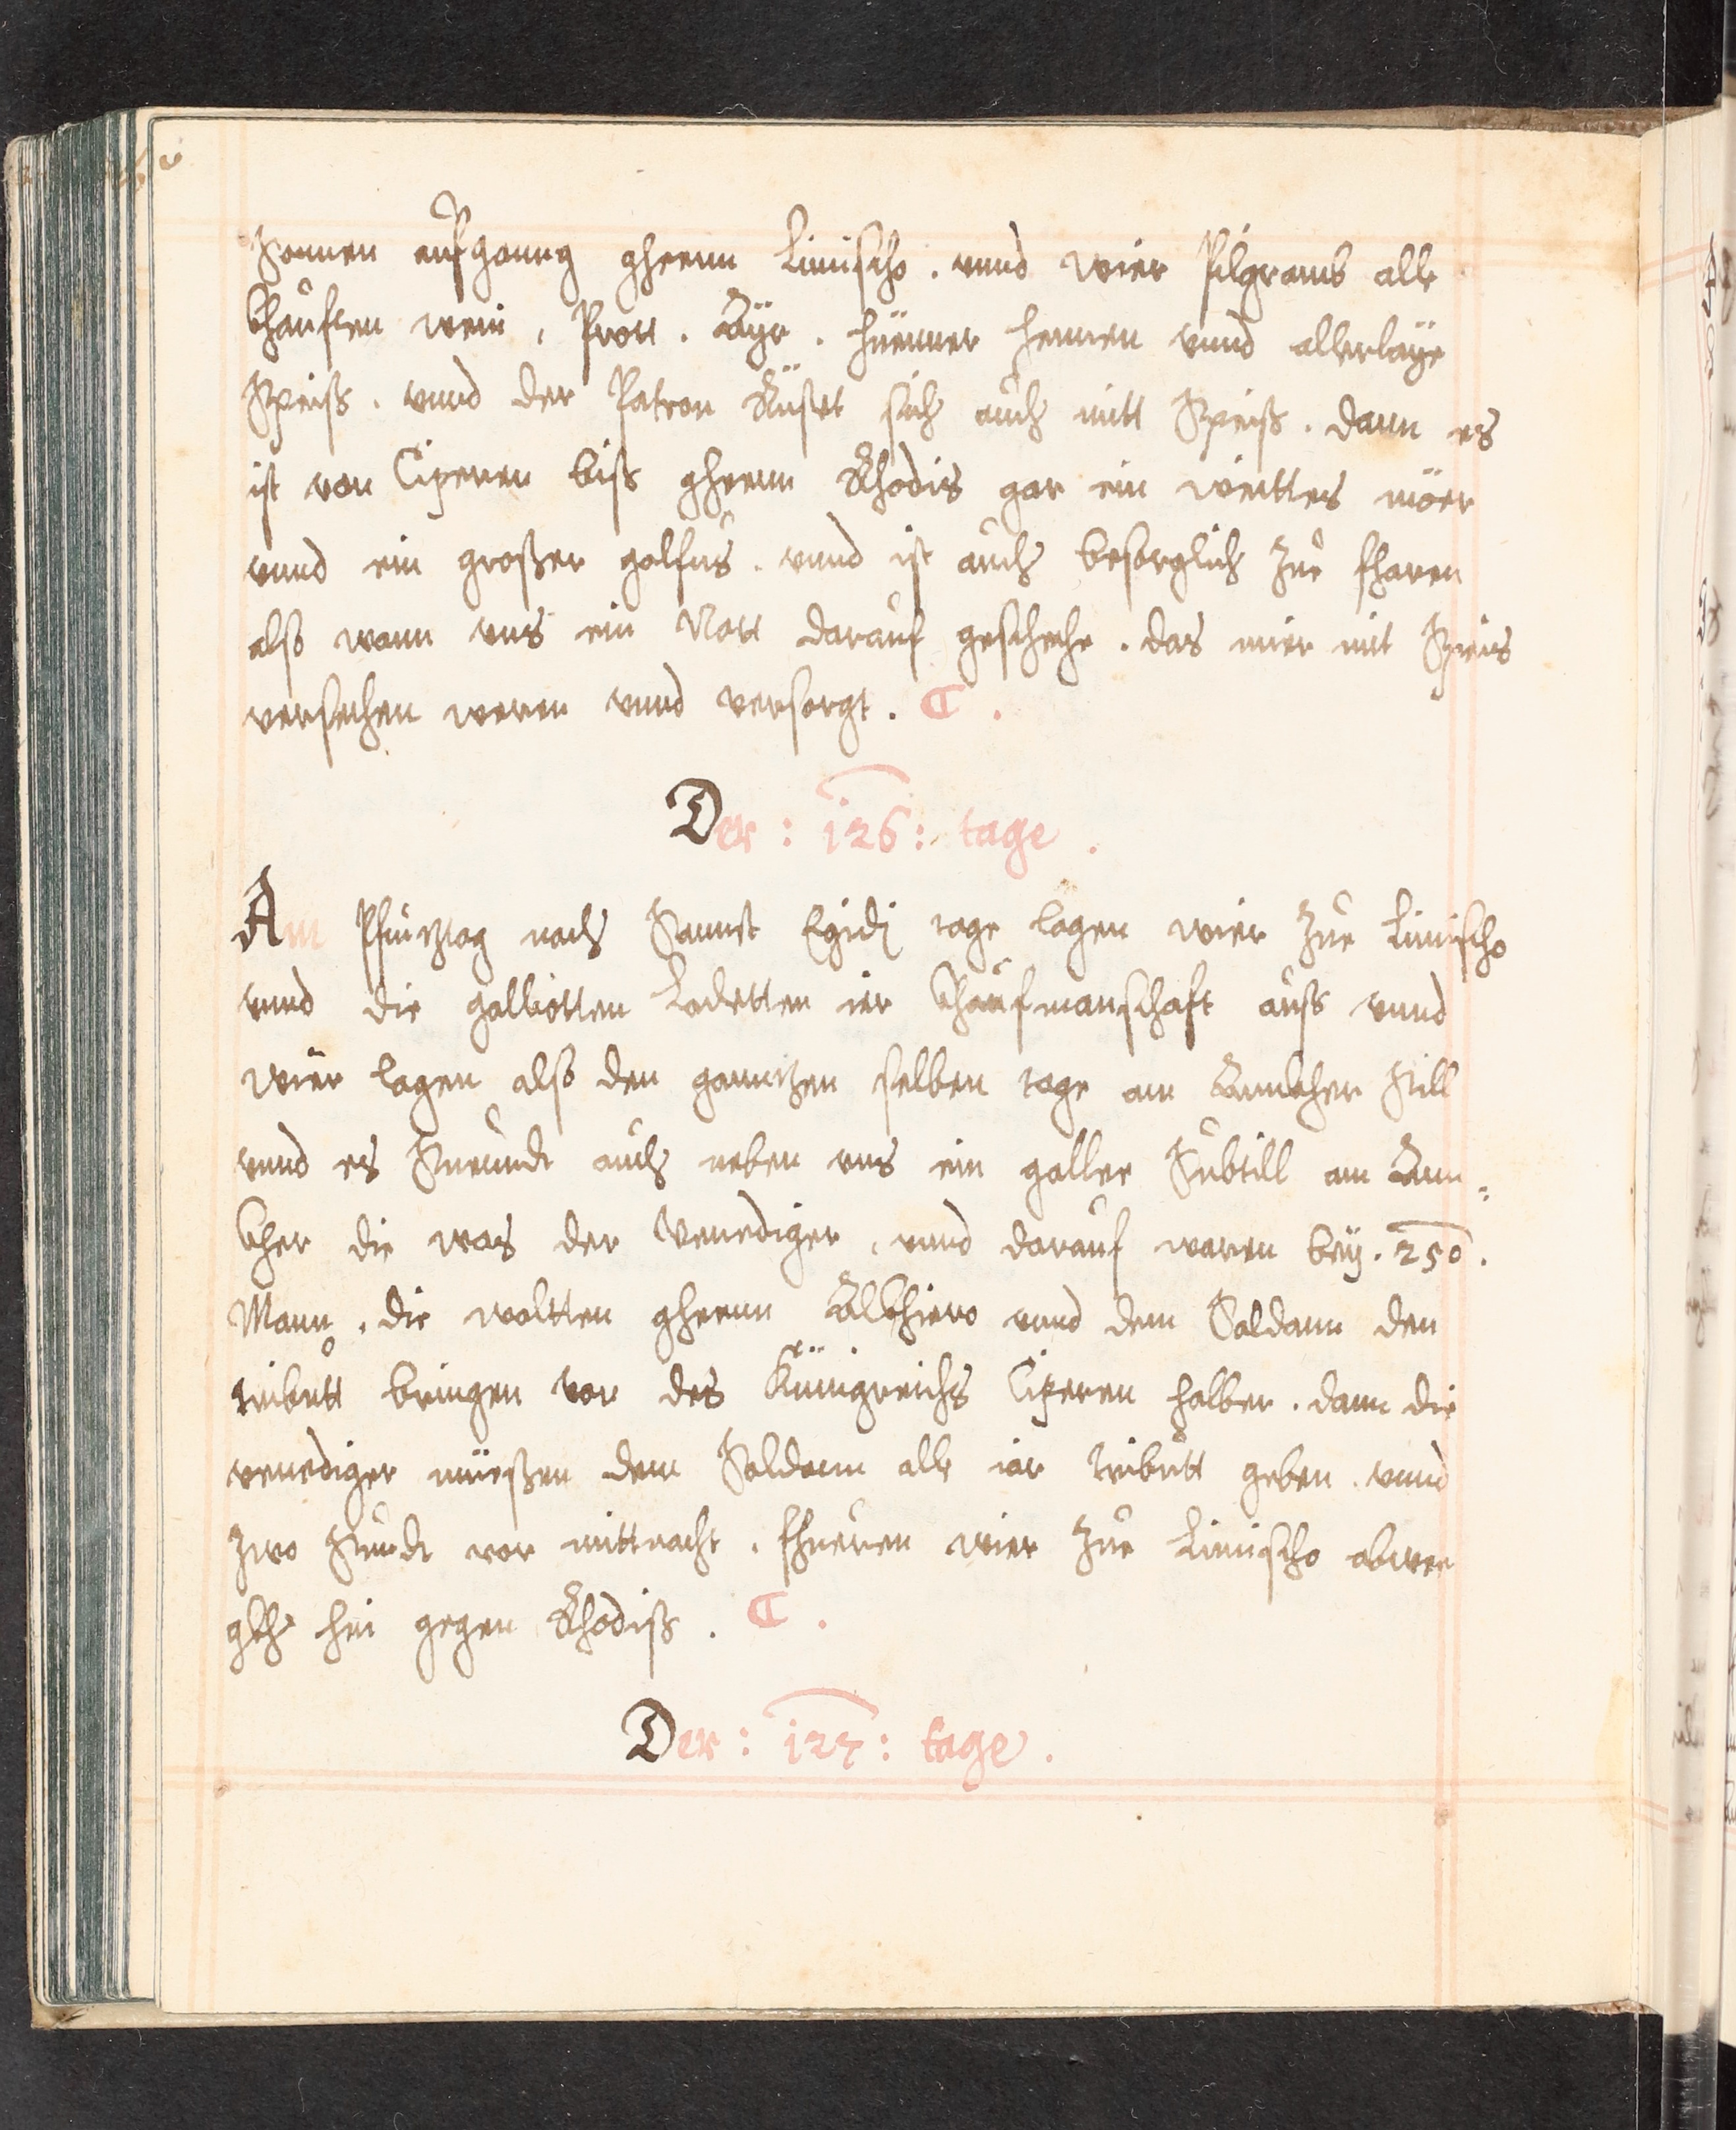 Sonnen aufganng gheenn Limischo. vnnd wier Pilgramb alle
khaufften wein, Prott. Ayr. hüenner hennen vnnd allerlaye
Speiss. vnnd der Patron Rüsst sich auch mitt Speiss. dann es
ist von Cipern biss gheenn Rhodis gar ein weittes möer
vnnd ein grosser golfus. vnnd ist auch besorglich zue fharen
also wann vns ein Nott darauf gescheche. das mier mit Speis
versechen weren vnnd versorgt.
Der : 126 : tage .
Am Pfintztag nach Sannt Egidj tage lagen wier zue Limischo
vnnd die galliotten Ladetten ier khaufmanschafft auss vnnd
wier lagen also den ganntzen selben tage am Annckher still
vnnd es Stuendt auch neben vns ein gallee Subtill am Ann=
kher die was der Venediger, vnnd darauf waren bey. 250.
Mann. die woltten gheenn Alkhiero vnnd dem Soldann den
tributt bringen vor des Künigreichs Ciperen halber. dann die
venediger müessen dem Soldann alle iar tributt geben. vnnd
zwo Stundt vor mittnacht. fhueren wier zue Limischo abwee
gkh hin gegen Rhodiss.
Der : 127 : tage .